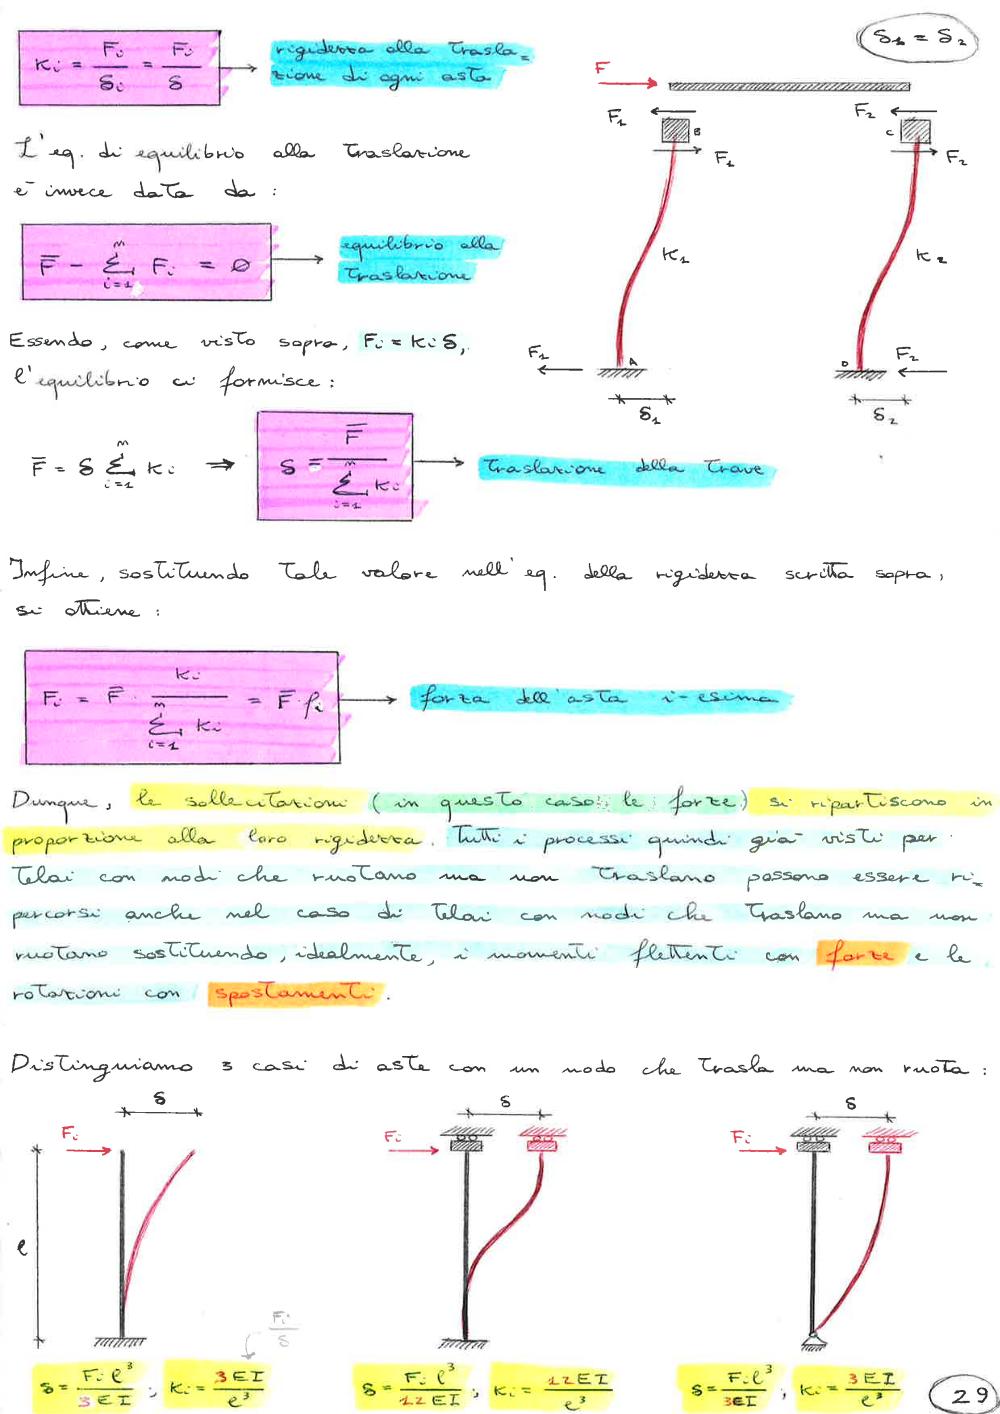 Ki = Fi/δi = Fi/δ → rigidezza alla trasla=
zione di ogni asta
δ1 = δ2
F
F1
F2
B
C
F1
F2
L'eq. di equilibrio alla traslazione
è invece data da:
K1
K2
F̅ - Σ(i=1, n) Fi = 0 → equilibrio alla
traslazione
Essendo, come visto sopra, Fi = Ki δ,
l'equilibrio ci fornisce:
F1
A
D
F2
δ1
δ2
F̅ = δ Σ(i=1, n) Ki ⇒ δ = F̅ / Σ(i=1, n) Ki → traslazione della trave
Infine, sostituendo tale valore nell'eq. della rigidezza scritta sopra,
si ottiene:
Fi = F̅ · Ki / Σ(i=1, n) Ki = F̅ · ρi → forza dell'asta i-esima
Dunque, le sollecitazioni (in questo caso le forze) si ripartiscono in
proporzione alla loro rigidezza. Tutti i processi quindi già visti per
telai con nodi che ruotano ma non traslano possono essere ri=
percorsi anche nel caso di telai con nodi che traslano ma non
ruotano sostituendo, idealmente, i momenti flettenti con forze e le
rotazioni con spostamenti.
Distinguiamo 3 casi di aste con un nodo che trasla ma non ruota:
δ
δ
δ
Fi
Fi
Fi
l
Fi/δ
δ = Fi l³/3EI ; Ki = 3EI/l³
δ = Fi l³/12EI ; Ki = 12EI/l³
δ = Fi l³/3EI ; Ki = 3EI/l³
29